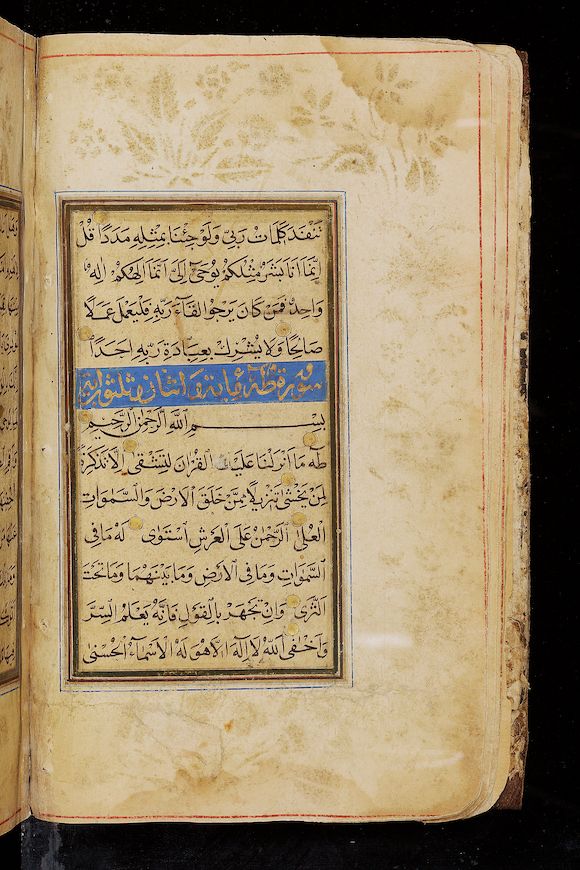 تَنْفَدَ كَلِمَاتُ رَبِّي وَلَوْ جِئْنَا بِمِثْلِهِ مَدَدًا قُلْ
اِنَّمَا اَنَا بَشَرٌ مِثْلُكُمْ يُوحٰى اِلَيَّ اَنَّمَا اِلٰهُكُمْ اِلٰهٌ
وَاحِدٌ فَمَنْ كَانَ يَرْجُوا لِقَآءَ رَبِّهِ فَلْيَعْمَلْ عَمَلًا
صَالِحًا وَلَا يُشْرِكْ بِعِبَادَةِ رَبِّهِ اَحَدًا
سورة طه مائة و اثنان و ثلثون اية
بِسْمِ اللّٰهِ الرَّحْمٰنِ الرَّحِيمِ
طٰه مَا اَنْزَلْنَا عَلَيْكَ الْقُرْاٰنَ لِتَشْقٰى اِلَّا تَذْكِرَةً
لِمَنْ يَخْشٰى تَنْزِيلًا مِمَّنْ خَلَقَ الْاَرْضَ وَالسَّمٰوَاتِ
الْعُلٰى اَلرَّحْمٰنُ عَلَى الْعَرْشِ اسْتَوٰى لَهُ مَا فِي
السَّمٰوَاتِ وَمَا فِي الْاَرْضِ وَمَا بَيْنَهُمَا وَمَا تَحْتَ
الثَّرٰى وَاِنْ تَجْهَرْ بِالْقَوْلِ فَاِنَّهُ يَعْلَمُ السِّرَّ
وَاَخْفٰى اَللّٰهُ لَا اِلٰهَ اِلَّا هُوَ لَهُ الْاَسْمَآءُ الْحُسْنٰى